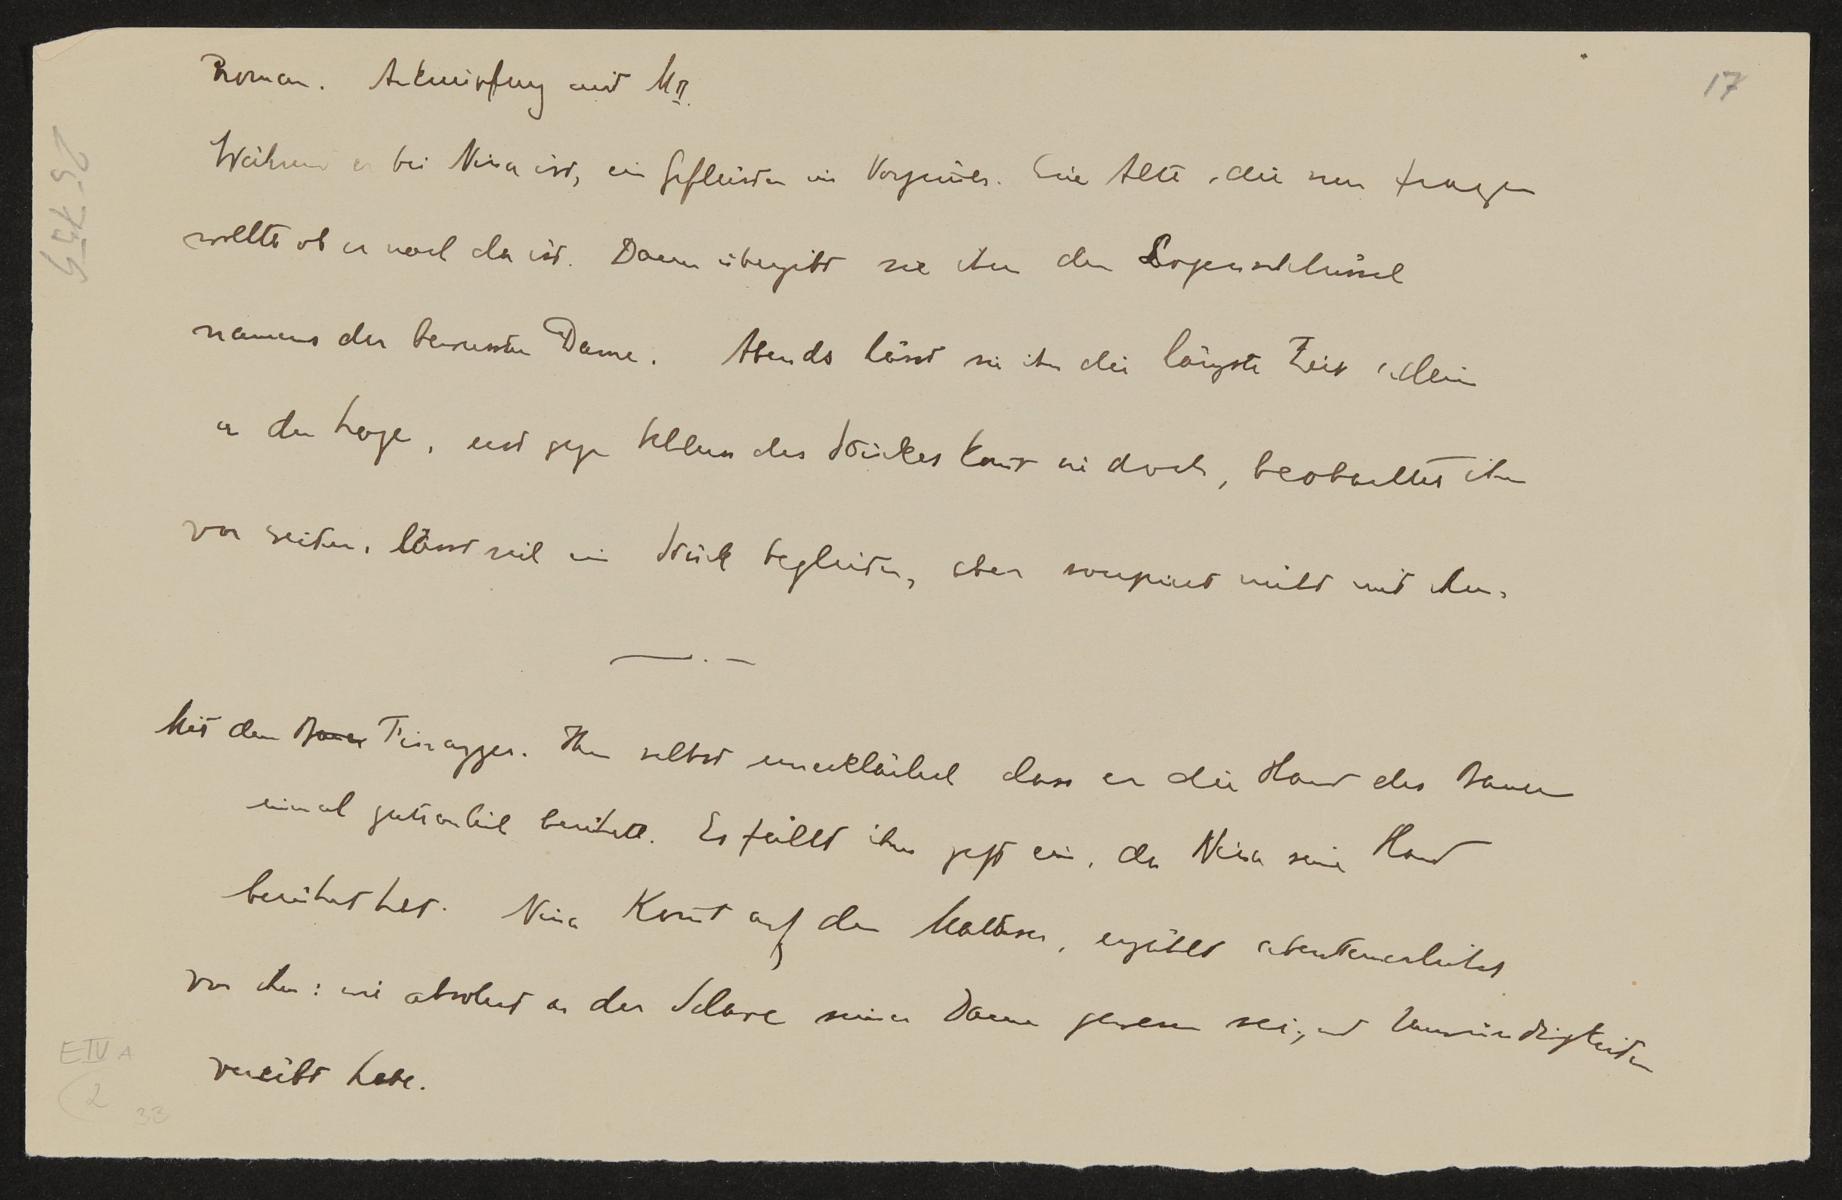 Roman. Anknüpfung mit M II.
17
Während er bei Nina ist, ein Geflüster im Vorzimer. Eine Alte, die nur fragen
wollte ob er noch da ist. Dann übergibt sie ihm den Logenschlüssel
namens der bewussten Dame. Abends lässt sie ihn die längste Zeit allein
in der Loge, erst gegen Schluss des Stückes komt sie doch, beobachtet ihn
von seiten, lässt sich ein Stück begleiten, aber soupiert nicht mit ihm.
Mit dem Bauer Finazzer. Ihm selbst unerklärlich dass er die Hand des Bauern
einmal zutraulich berührte. Es fällt ihm jetzt ein, da Nina seine Hand
berührt hat. Nina komt auf den Malteser, erzählt abenteuerliches
von ihm: wie absolut er der Sclave seiner Dame gewesen sei, und Unwürdigkeiten
verübt habe.
E IV A
2
33